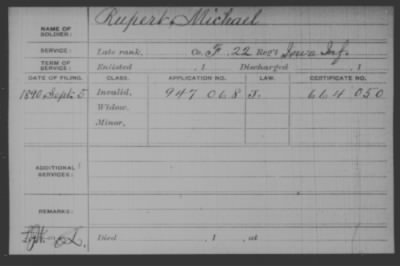 NAME OF SOLDIER: Rupert, Michael
SERVICE: Late rank, Co. F. 22 Reg't Iowa Inf.
TERM OF SERVICE: Enlisted , 1 Discharged , 1
DATE OF FILING. CLASS. APPLICATION NO. LAW. CERTIFICATE NO.
1890 Sept. 5 Invalid, 947 068 J. 664 050
Widow,
Minor,
ADDITIONAL SERVICES:
REMARKS:
Died , 1 , at